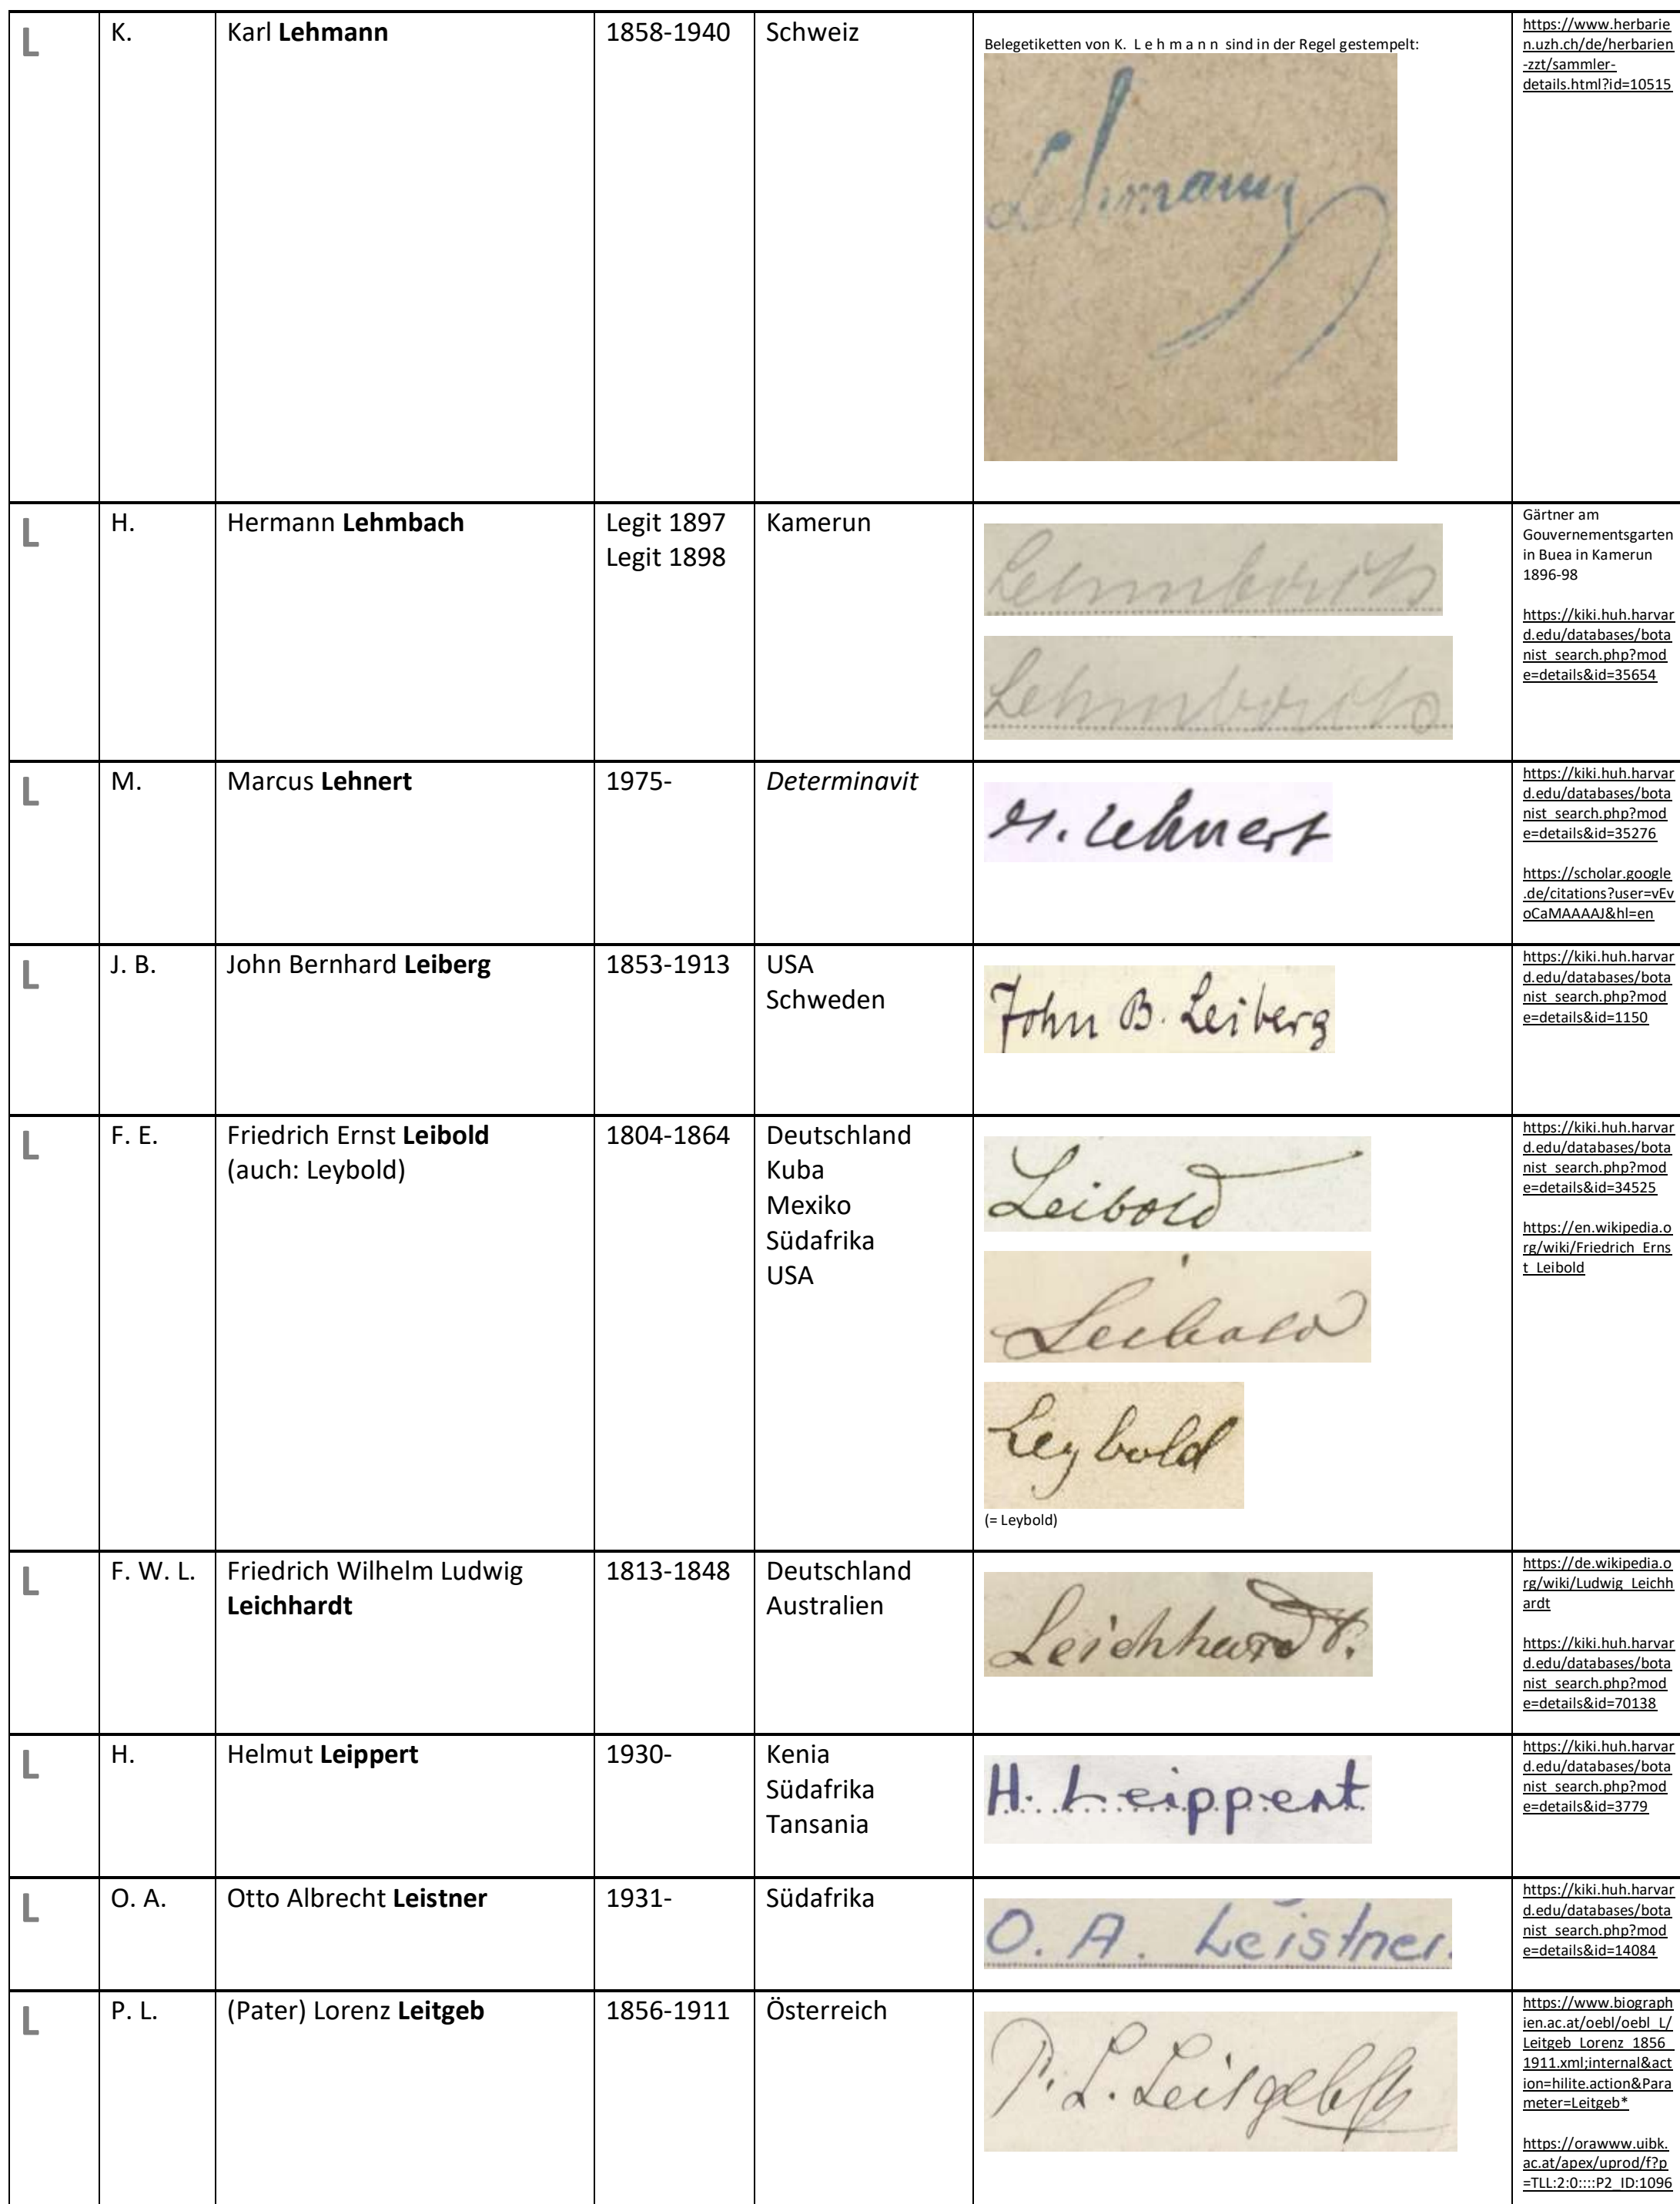 L
K.
Karl Lehmann
1858-1940
Schweiz
Belegetiketten von K. L e h m a n n sind in der Regel gestempelt:
Lehmann
https://www.herbarie
n.uzh.ch/de/herbarien
-zzt/sammler-
details.html?id=10515
L
H.
Hermann Lehmbach
Legit 1897
Legit 1898
Kamerun
Lehmbach
Lehmbach
Gärtner am
Gouvernementsgarten
in Buea in Kamerun
1896-98
https://kiki.huh.harvar
d.edu/databases/bota
nist_search.php?mod
e=details&id=35654
L
M.
Marcus Lehnert
1975-
Determinavit
M. Lehnert
https://kiki.huh.harvar
d.edu/databases/bota
nist_search.php?mod
e=details&id=35276
https://scholar.google
.de/citations?user=vEv
oCaMAAAAJ&hl=en
L
J. B.
John Bernhard Leiberg
1853-1913
USA
Schweden
John B. Leiberg
https://kiki.huh.harvar
d.edu/databases/bota
nist_search.php?mod
e=details&id=1150
L
F. E.
Friedrich Ernst Leibold
(auch: Leybold)
1804-1864
Deutschland
Kuba
Mexiko
Südafrika
USA
Leibold
Leibold
Leybold
(= Leybold)
https://kiki.huh.harvar
d.edu/databases/bota
nist_search.php?mod
e=details&id=34525
https://en.wikipedia.o
rg/wiki/Friedrich_Erns
t_Leibold
L
F. W. L.
Friedrich Wilhelm Ludwig
Leichhardt
1813-1848
Deutschland
Australien
Leichhardt.
https://de.wikipedia.o
rg/wiki/Ludwig_Leichh
ardt
https://kiki.huh.harvar
d.edu/databases/bota
nist_search.php?mod
e=details&id=70138
L
H.
Helmut Leippert
1930-
Kenia
Südafrika
Tansania
H. Leippert
https://kiki.huh.harvar
d.edu/databases/bota
nist_search.php?mod
e=details&id=3779
L
O. A.
Otto Albrecht Leistner
1931-
Südafrika
O. A. Leistner.
https://kiki.huh.harvar
d.edu/databases/bota
nist_search.php?mod
e=details&id=14084
L
P. L.
(Pater) Lorenz Leitgeb
1856-1911
Österreich
P. L. Leitgeb
https://www.biograph
ien.ac.at/oebl/oebl_L/
Leitgeb_Lorenz_1856_
1911.xml;internal&act
ion=hilite.action&Para
meter=Leitgeb*
https://orawww.uibk.
ac.at/apex/uprod/f?p
=TLL:2:0::::P2_ID:1096